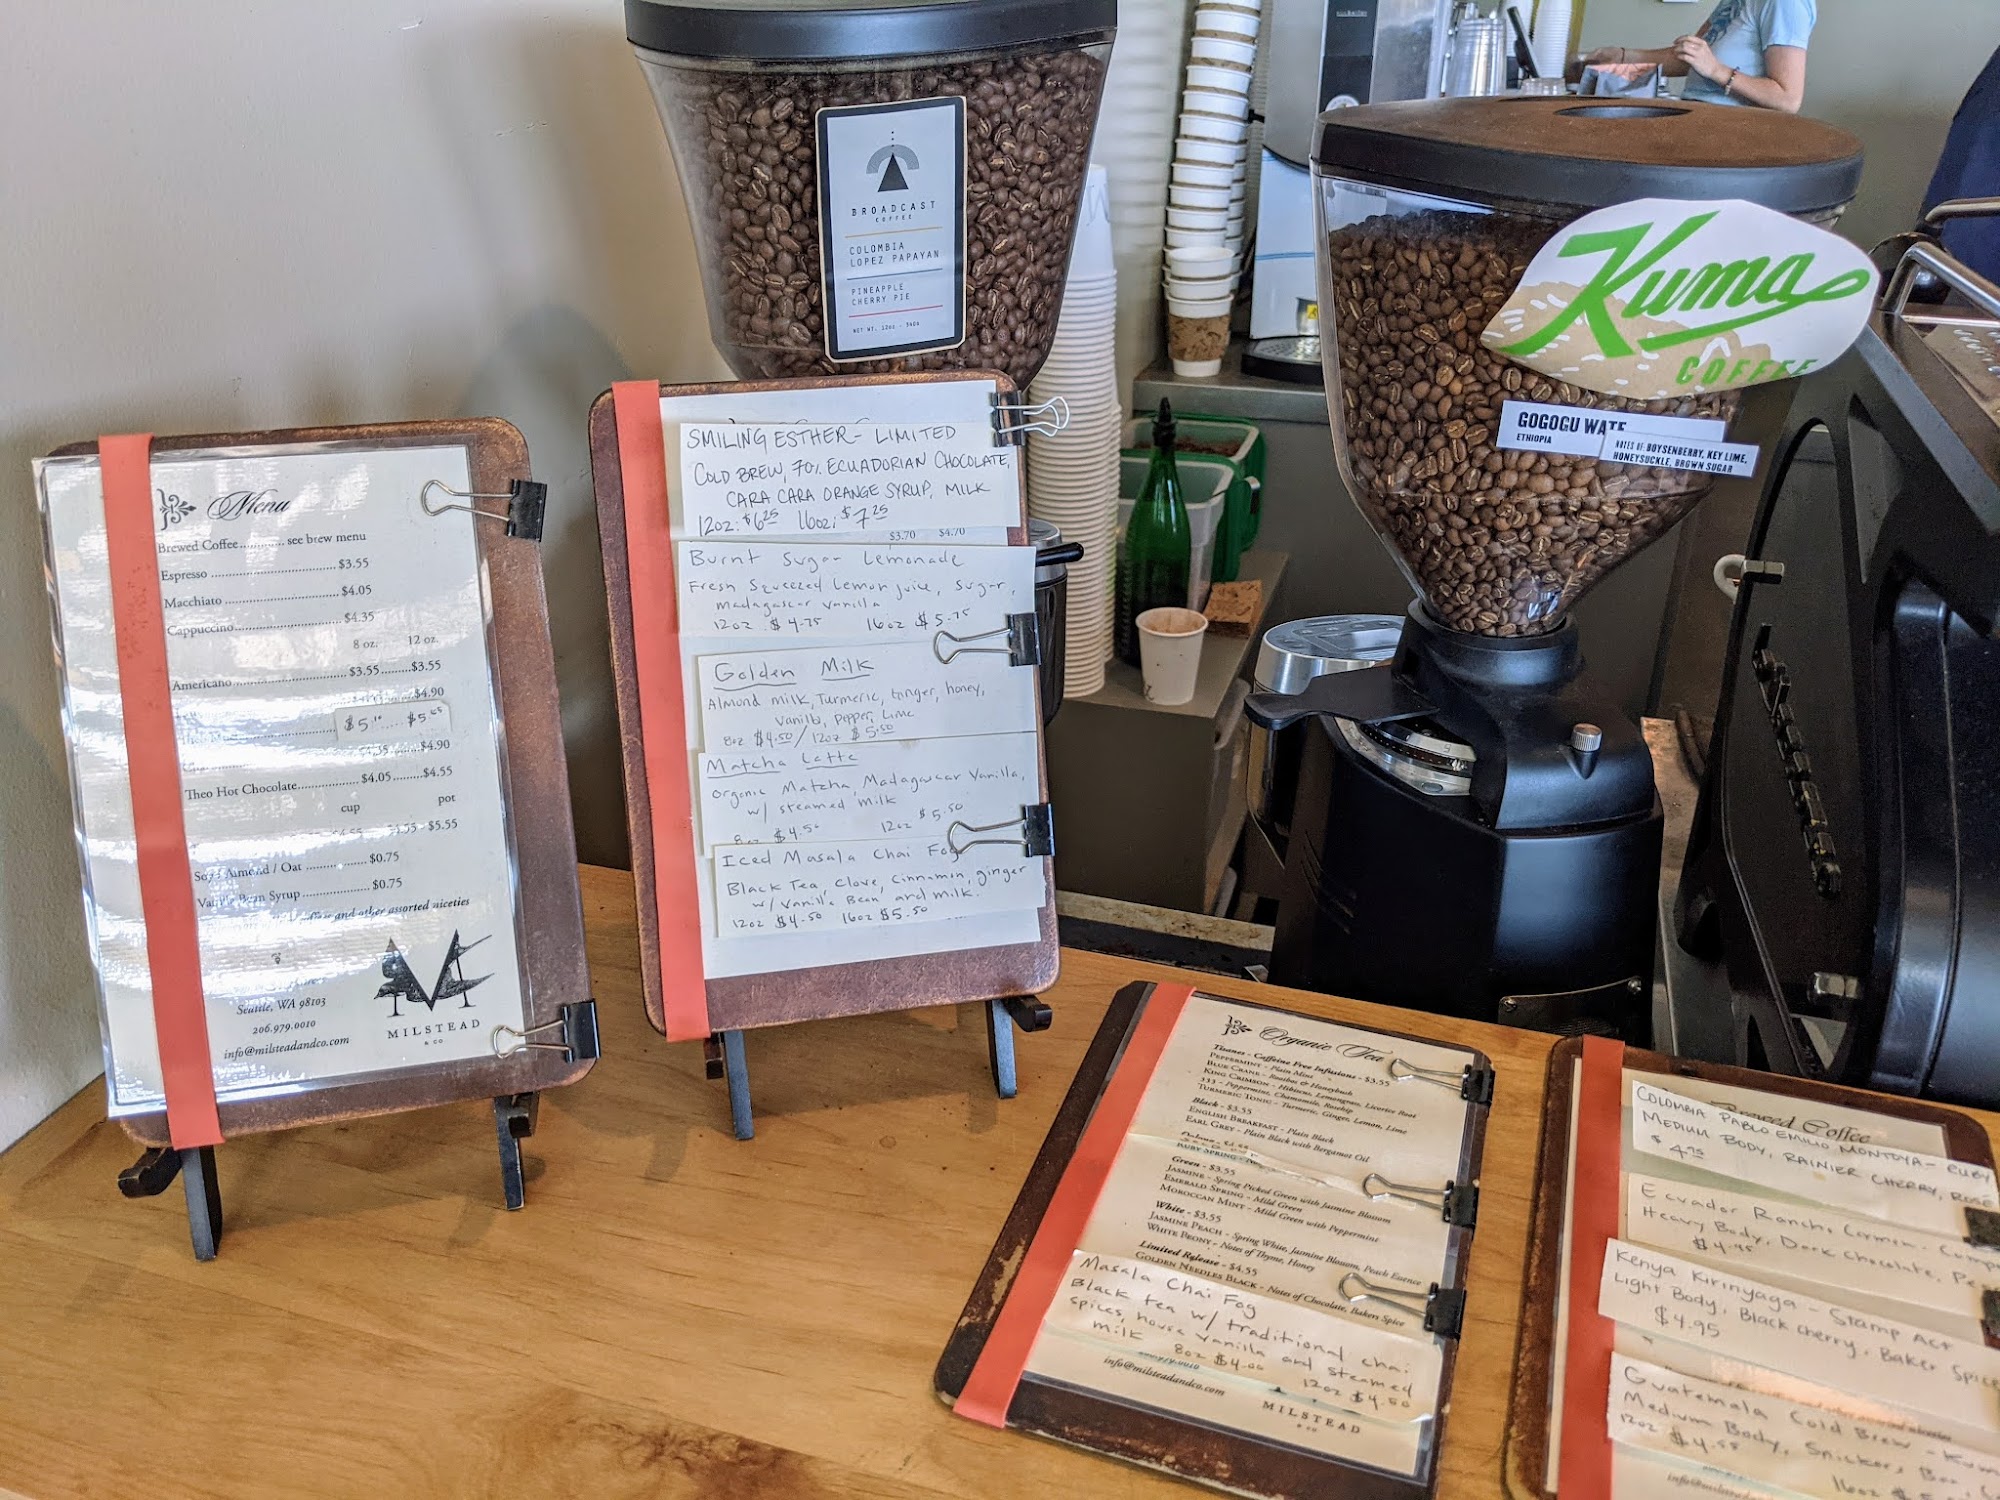 Menu
Brewed Coffee............ see brew menu
Espresso ................................ $3.55
Macchiato ............................. $4.05
Cappuccino............................ $4.35
8 oz. 12 oz.
Americano............................ $3.55.........$3.55
$4.90
$5.10 ..... $5.65
$4.90
Theo Hot Chocolate................ $4.05.........$4.55
cup pot
$5.55
Soy / Almond / Oat ................ $0.75
Vanilla Bean Syrup .................. $0.75
and other assorted niceties
Seattle, WA 98103
206.979.0010
info@milsteadandco.com
MILSTEAD
& CO.
BROADCAST
COFFEE
COLOMBIA
LOPEZ PAPAYAN
PINEAPPLE
CHERRY PIE
NET WT. 12oz - 340g
SMILING ESTHER - LIMITED
COLD BREW, 70% ECUADORIAN CHOCOLATE,
CARA CARA ORANGE SYRUP, MILK
12oz: $6.25 16oz: $7.25
$3.70 $4.70
Burnt Sugar Lemonade
Fresh Squeezed Lemon juice, sugar,
Madagascar vanilla
12oz $4.75 16oz $5.75
Golden Milk
Almond milk, Turmeric, ginger, honey,
vanilla, pepper, lime
8oz $4.50 / 12oz $5.50
Matcha Latte
Organic Matcha, Madagascar Vanilla,
w/ steamed milk
8oz $4.50 12oz $5.50
Iced Masala Chai Fog
Black Tea, Clove, Cinnamon, ginger
w/ Vanilla Bean and milk.
12oz $4.50 16oz $5.50
Kuma
COFFEE
GOGOGU WATE
ETHIOPIA
NOTES OF: BOYSENBERRY, KEY LIME,
HONEYSUCKLE, BROWN SUGAR
Organic Tea
Tisanes - Caffeine Free Infusions - $3.55
PEPPERMINT - Plain Mint
BLUE CRANE - Rooibos & Honeybush
KING CRIMSON - Hibiscus, Lemongrass, Licorice Root
333 - Peppermint, Chamomile, Rosehip
TURMERIC TONIC - Turmeric, Ginger, Lemon, Lime
Black - $3.55
ENGLISH BREAKFAST - Plain Black
EARL GREY - Plain Black with Bergamot Oil
RUBY SPRING -
Green - $3.55
JASMINE - Spring Picked Green with Jasmine Blossom
EMERALD SPRING - Mild Green
MOROCCAN MINT - Mild Green with Peppermint
White - $3.55
JASMINE PEACH - Spring White, Jasmine Blossom, Peach Essence
WHITE PEONY - Notes of Thyme, Honey
Limited Release - $4.55
GOLDEN NEEDLES BLACK - Notes of Chocolate, Bakers Spice
Masala Chai Fog
Black tea w/ traditional chai
spices, house vanilla and steamed
milk
8oz $4.00 12oz $4.50
info@milsteadandco.com
MILSTEAD
& CO
Brewed Coffee
COLOMBIA PABLO EMILIO MONTOYA - RUBY
MEDIUM BODY, RAINIER CHERRY, ROSÉ
$4.75
Ecuador Rancho Carmen -
Heavy Body, Dark Chocolate,
$4.45
Kenya Kirinyaga - Stamp Act
Light Body, Black cherry, Baker Spice
$4.95
Guatemala Cold Brew - Kuma
Medium Body, Snicker,
12oz $4.55 16oz
info@milsteadandco